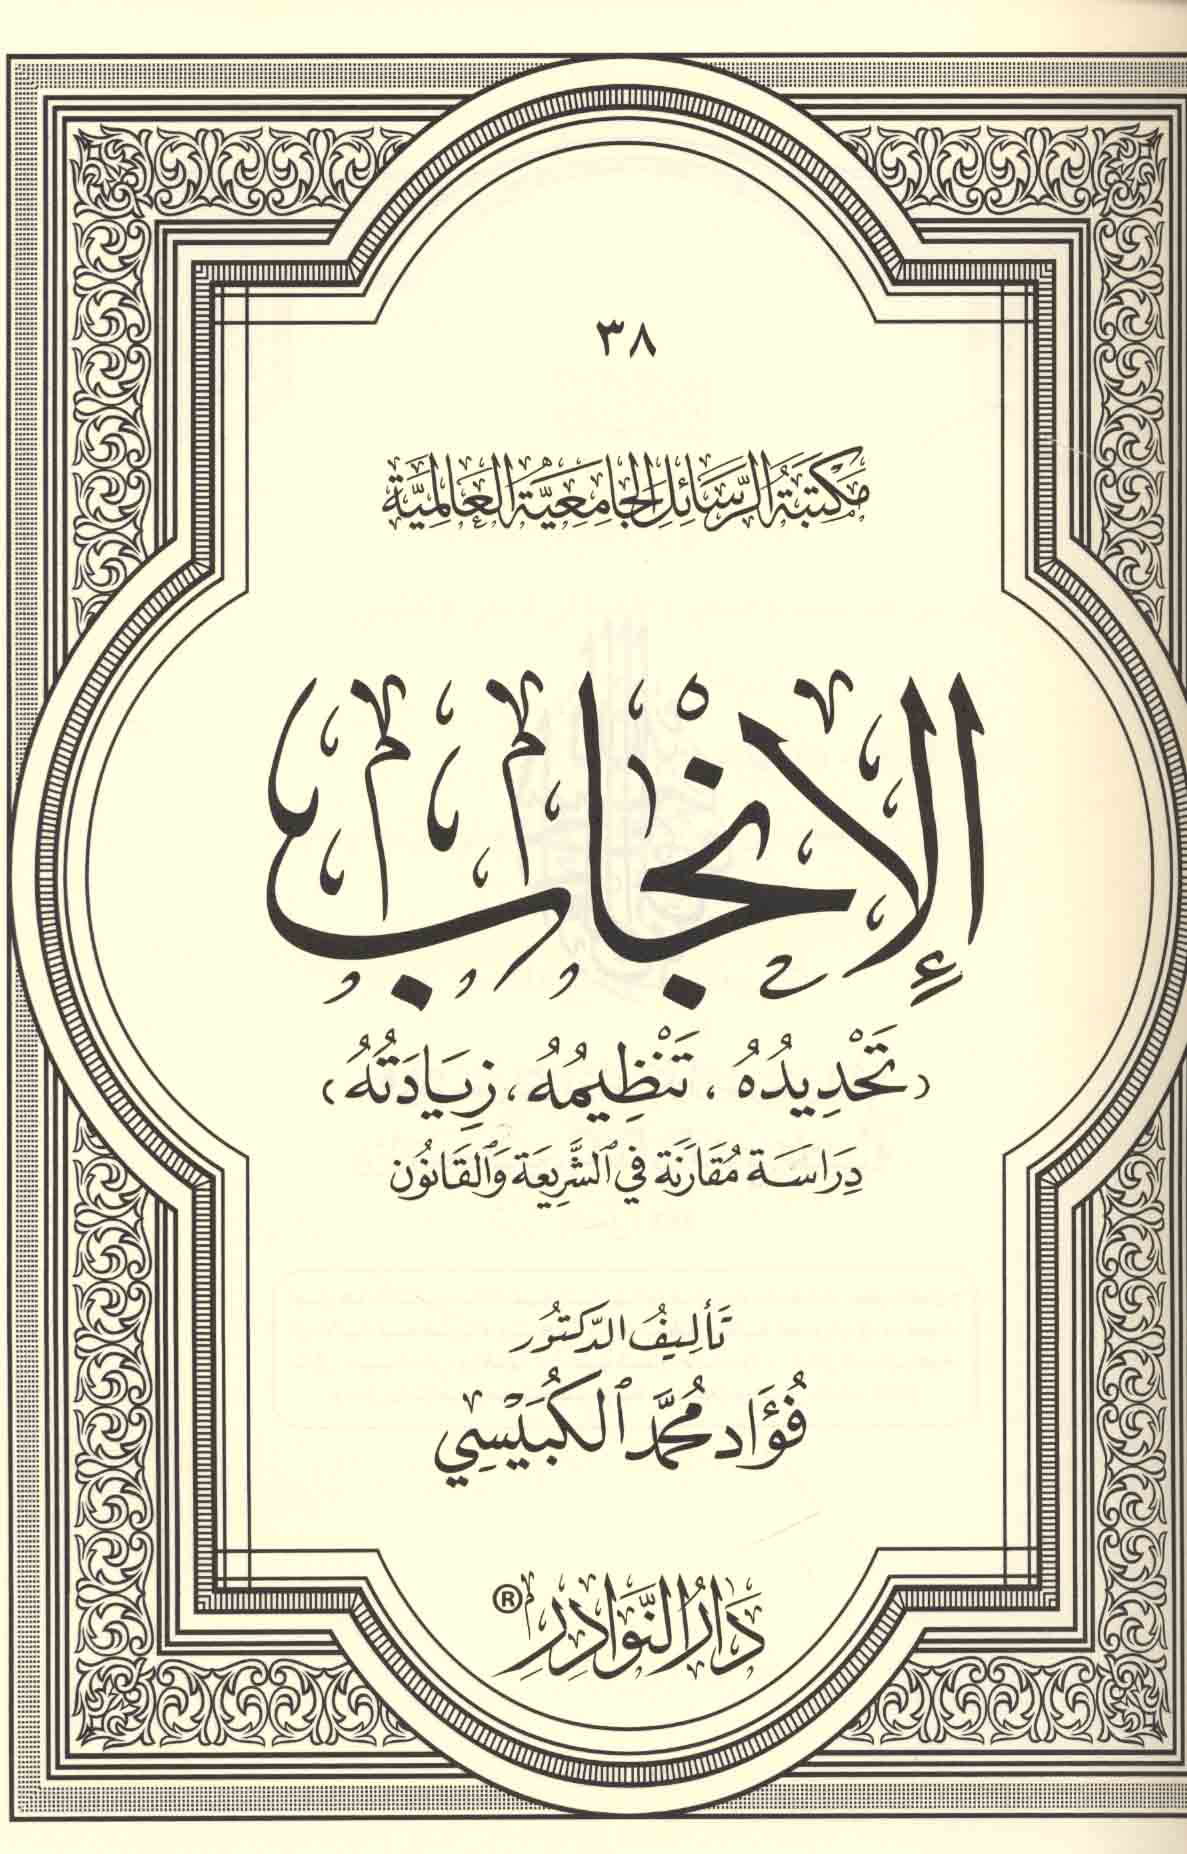 ٣٨
مَكتَبَةُ الرَّسَائِلِ الجَامِعِيَّةِ العَالَمِيَّةِ
الإِنْجَابُ
(تَحْدِيدُهُ، تَنْظِيمُهُ، زِيَادَتُهُ)
دِرَاسَة مُقَارَنَة فِي الشَّرِيعَة وَالقَانُون
تَأليفُ الدّكتُور
فُؤَاد مُحَمَّد الكُبَيْسِي
دَارُ النَّوَادِرِ ®